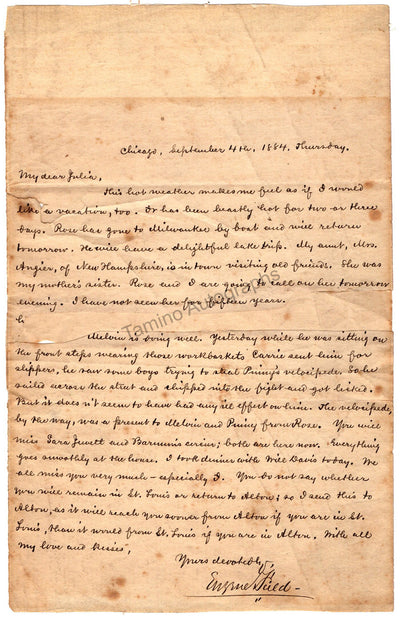 Chicago, September 4th, 1884. Thursday.
My dear Julia,
This hot weather makes me feel as if I would
like a vacation, too. It has been beastly hot for two or three
days. Rose has gone to Milwaukee by boat and will return
tomorrow. He will have a delightful lake trip. My aunt, Mrs.
Angier, of New Hampshire, is in town visiting old friends. She was
my mother's sister. Rose and I are going to call on her tomorrow
evening. I have not seen her for fifteen years.
Melvin is doing well. Yesterday while he was sitting on
the front steps wearing those workbaskets Carrie sent him for
slippers, he saw some boys trying to steal Pinny's velocipede. So he
sailed across the street and chipped into the fight and got licked.
But it does n't seem to have had any ill effect on him. The velocipede,
by the way, was a present to Melvin and Pinny from Rose. You will
miss Sara Jewett and Barnum's circus; both are here now. Everything
goes smoothly at the house. I took dinner with Will Davis today. We
all miss you very much - especially I. You do not say whether
you will remain in St. Louis or return to Alton; so I send this to
Alton, as it will reach you sooner from Alton if you are in St.
Louis, than it would from St. Louis if you are in Alton. With all
my love and kisses,
Yours devotedly,
Eugene Field -
Tamino Autographs